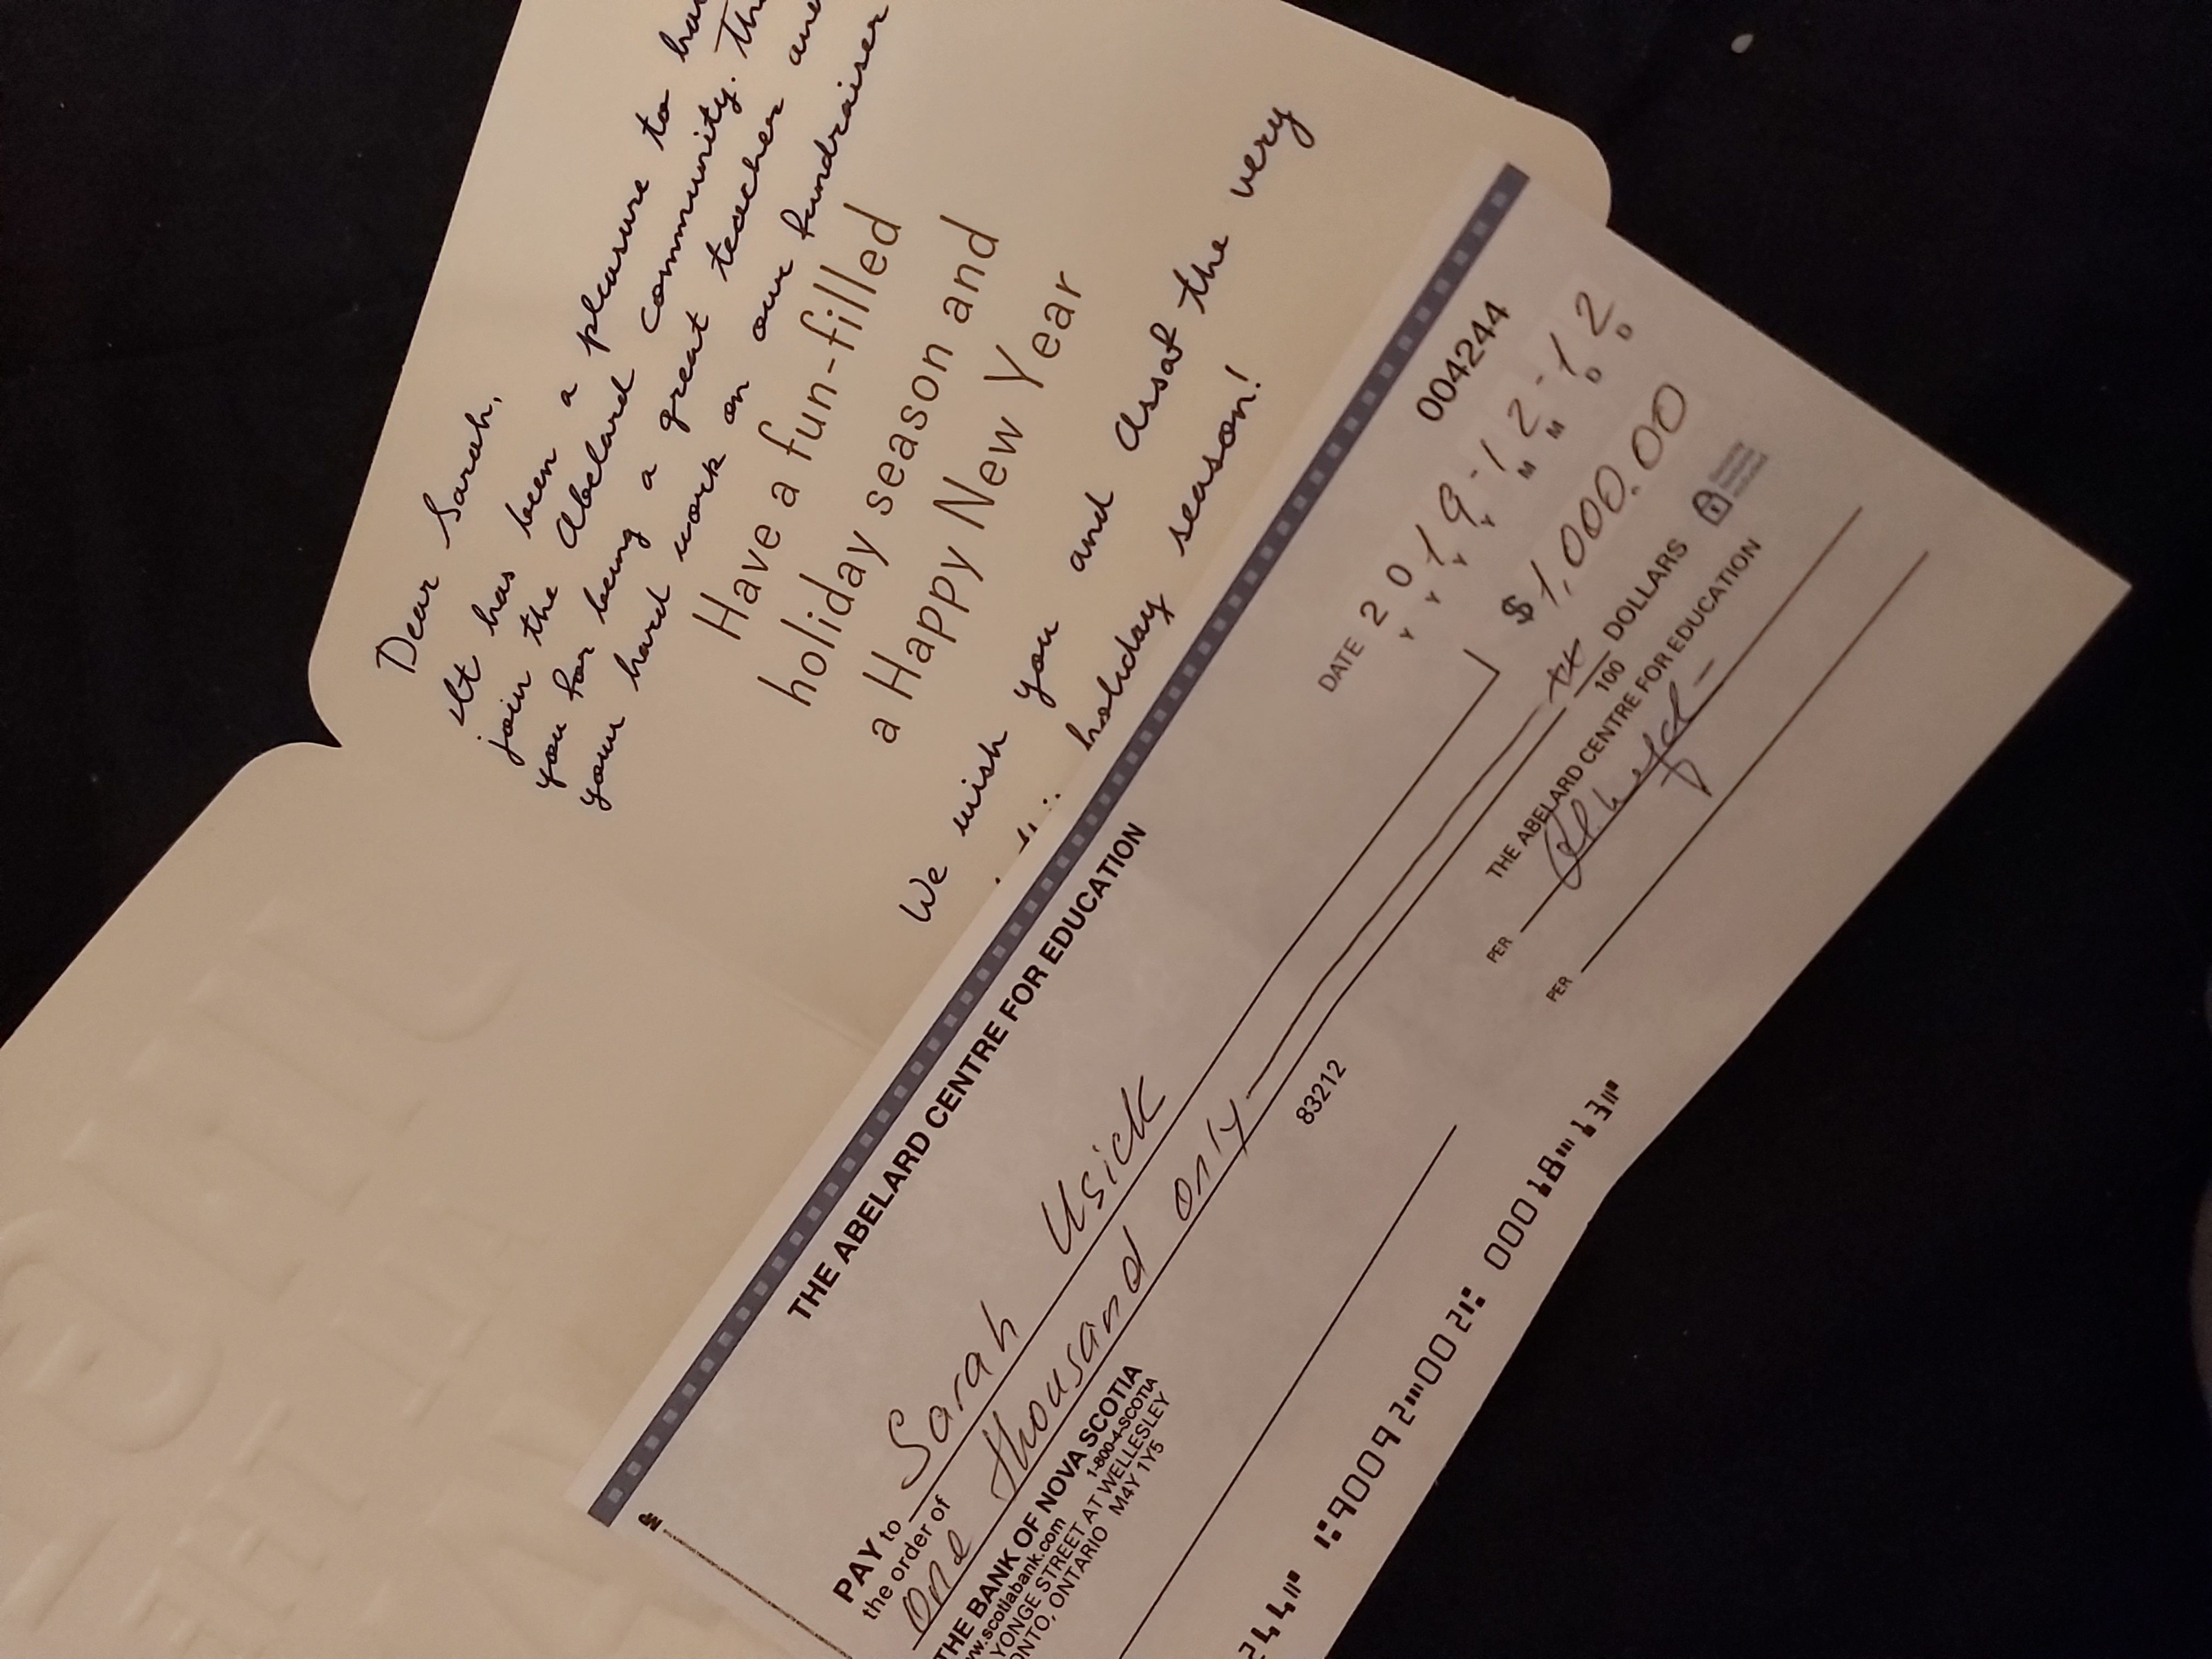 Dear Sarah,
It has been a pleasure to
join the Abelard community.
you for being a great teacher and
your hard work on our fundraiser
Have a fun-filled
holiday season and
a Happy New Year
We wish you and Assaf the very
holiday season!
THE ABELARD CENTRE FOR EDUCATION
004244
DATE 2019-12-12
Y Y Y Y M M D D
PAY to
the order of
Sarah Usick
$1,000.00
One thousand only
100 DOLLARS
THE BANK OF NOVA SCOTIA
www.scotiabank.com
1-800-4-SCOTIA
YONGE STREET AT WELLESLEY
ONTARIO M4Y 1Y5
THE ABELARD CENTRE FOR EDUCATION
PER
PER
83212